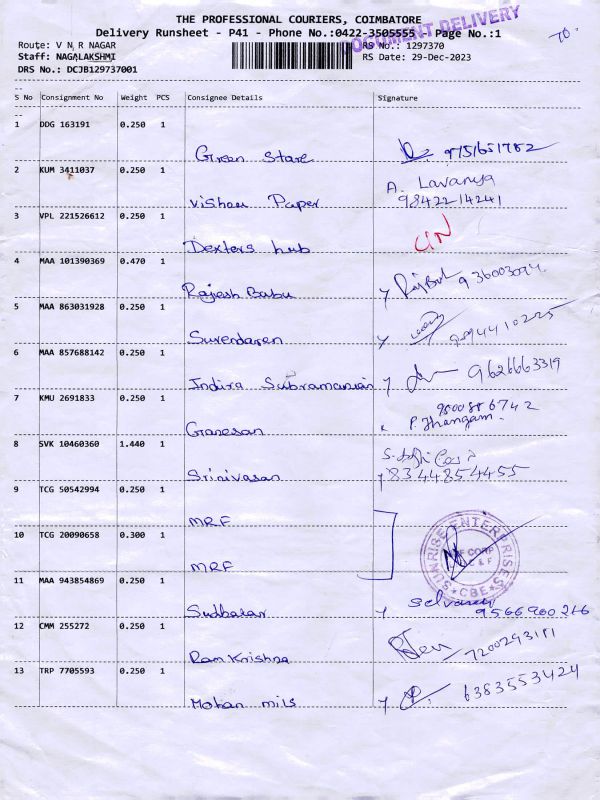 THE PROFESSIONAL COURIERS, COIMBATORE
Delivery Runsheet - P41 - Phone No.:0422-3505555 Page No.:1
DOCUMENT DELIVERY
Route: V N R NAGAR
RS No.: 1297370
Staff: NAGALAKSHMI
RS Date: 29-Dec-2023
DRS No.: DCJB129737001
S No Consignment No Weight PCS Consignee Details Signature
1 DDG 163191 0.250 1
Green Stare 9751651782
2 KUM 3411037 0.250 1
A. Lavanya
Vishnu Paper 9842214241
3 VPL 221526612 0.250 1
Dexters hub
4 MAA 101390369 0.470 1
Rajesh Babu
5 MAA 863031928 0.250 1
Surendaren
6 MAA 857688142 0.250 1
Indira Subramanian 9626663319
7 KMU 2691833 0.250 1
9500886742
Ganesan P. Thangam.
8 SVK 10460360 1.440 1
Srinivasan 8344854455
9 TCG 50542994 0.250 1
MRF
10 TCG 20090658 0.300 1
MRF
SUNRISE ENTERPRISES
CORP
C & F
★ CBE ★
11 MAA 943854869 0.250 1
Sudhakar 9566900266
12 CMM 255272 0.250 1
Ram Krishna 7200293181
13 TRP 7705593 0.250 1
Mohan mils 6383553424